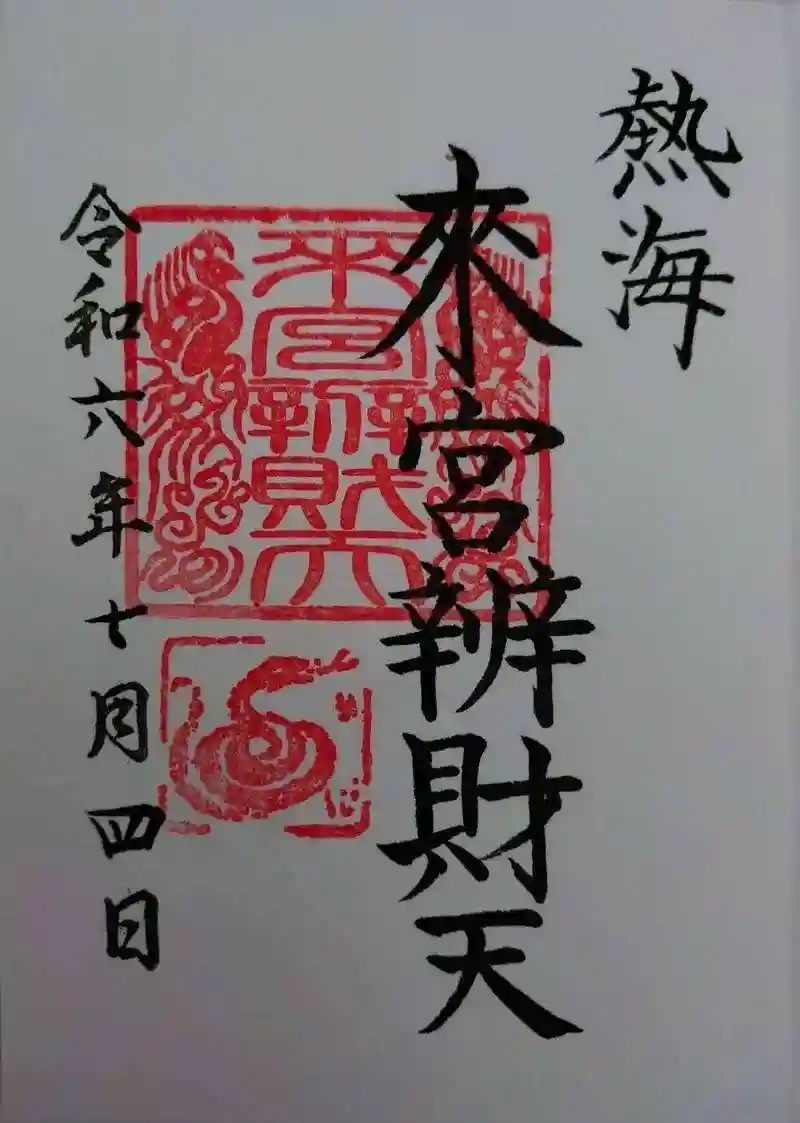 熱海
來宮辨財天
来宮辨財天
令和六年七月四日